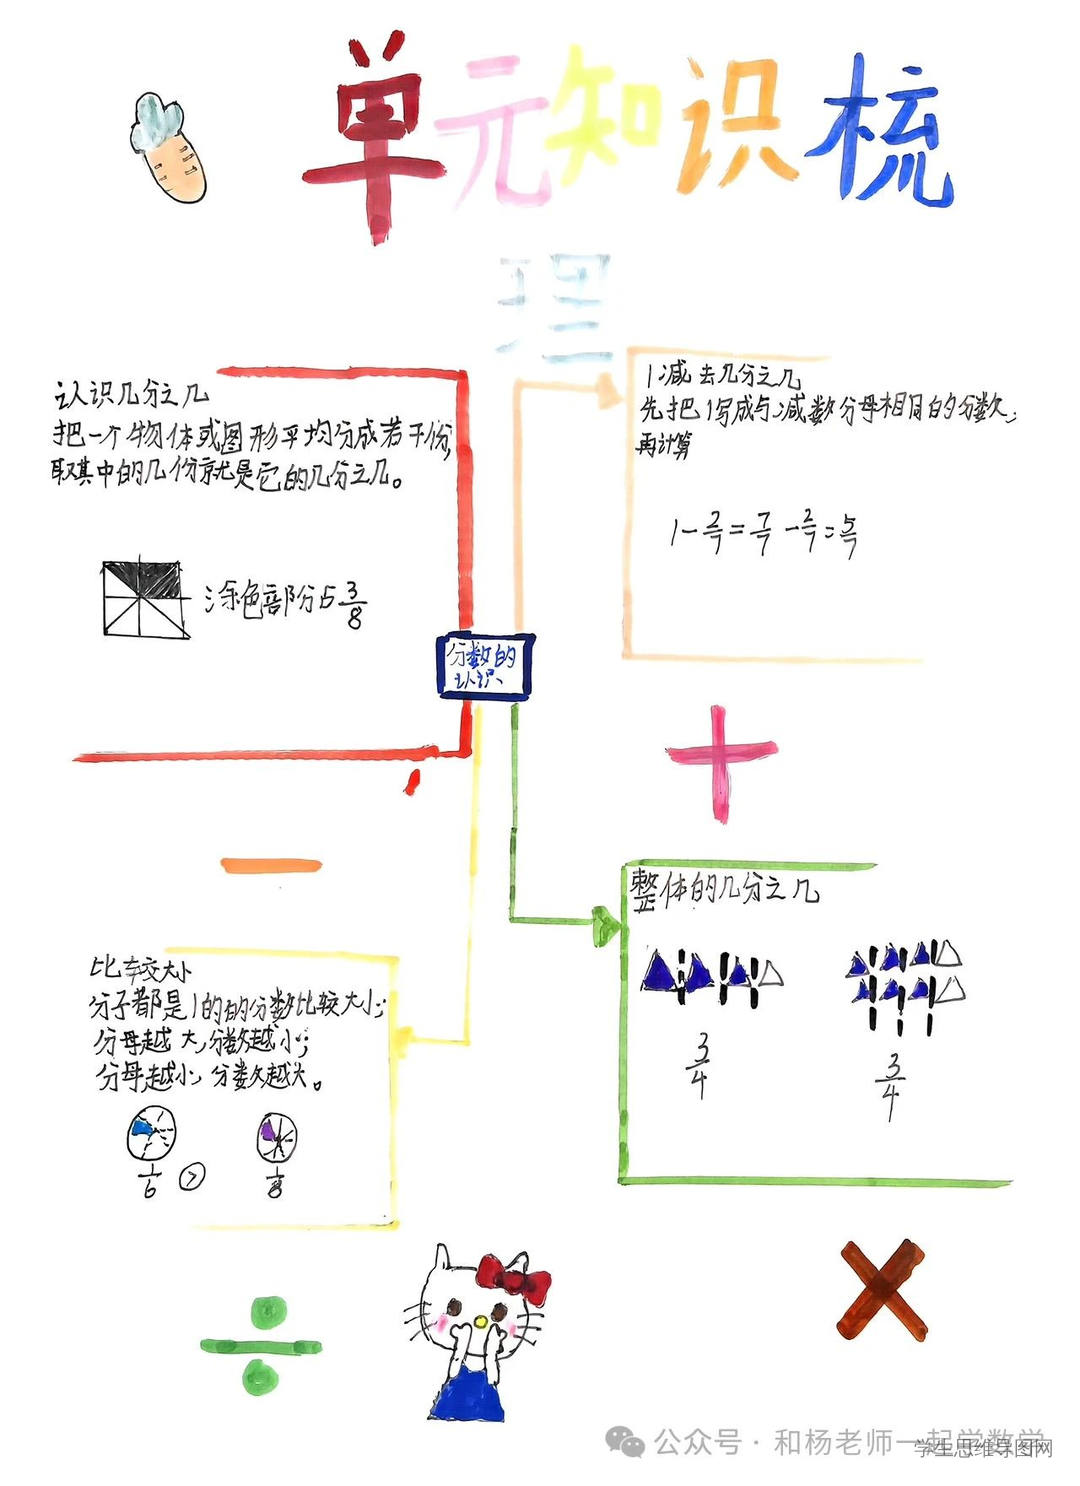 单元知识梳
理
认识几分之几
把一个物体或图形平均分成若干份,
取其中的几份就是它的几分之几。
涂色部分占3/8
1减去几分之几
先把1写成与减数分母相同的分数,
再计算
1-2/7=7/7-2/7=5/7
分数的
认识
整体的几分之几
3/4
3/4
比较大小
分子都是1的的分数比较大小;
分母越大,分数越小;
分母越小,分数越大。
1/6 > 1/8
公众号·和杨老师一起学数学
学生思维导图网